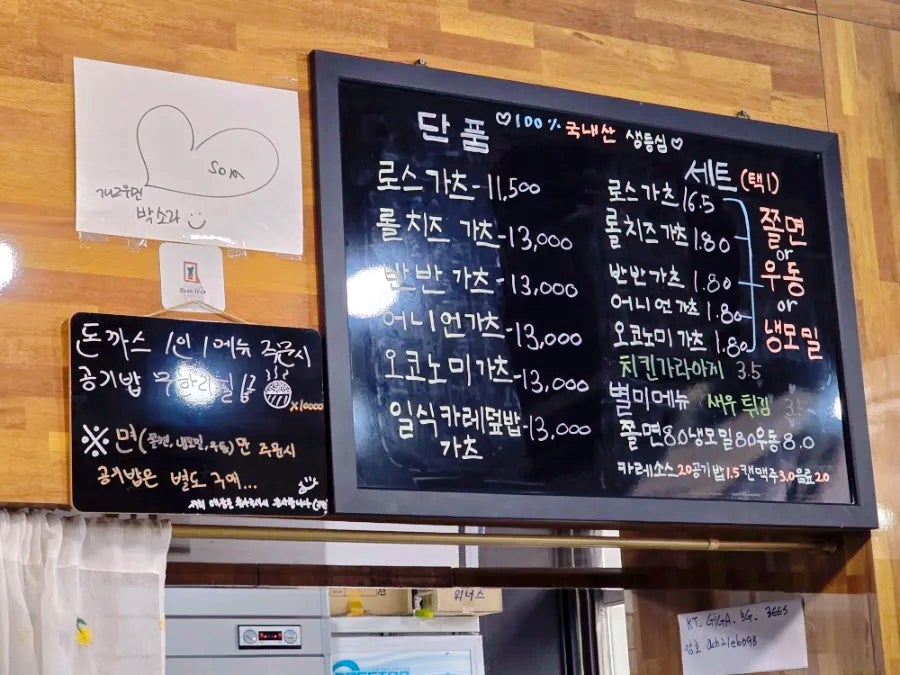 som
박소라
단품 ♡100% 국내산 생등심♡
로스가츠-11,500
롤치즈 가츠-13,000
반반가츠-13,000
어니언가츠-13,000
오코노미가츠-13,000
일식카레덮밥-13,000
가츠
세트(택1)
로스가츠 16.5
롤치즈가츠 1.80
반반가츠 1.80
어니언가츠 1.80
오코노미가츠 1.80
쫄면
or
우동
or
냉모밀
치킨가라아게 3.5
별미메뉴 새우튀김 3.5
쫄면8.0냉모밀8.0우동8.0
카레소스2.0공기밥1.5캔맥주3.0음료2.0
돈까스 1인 1메뉴 주문시
공기밥 무한리필
x10000
※ 면(쫄면,냉모밀,우동)만 주문시
공기밥은 별도 구매...
위너스
KT_GiGA_5G_3EE5